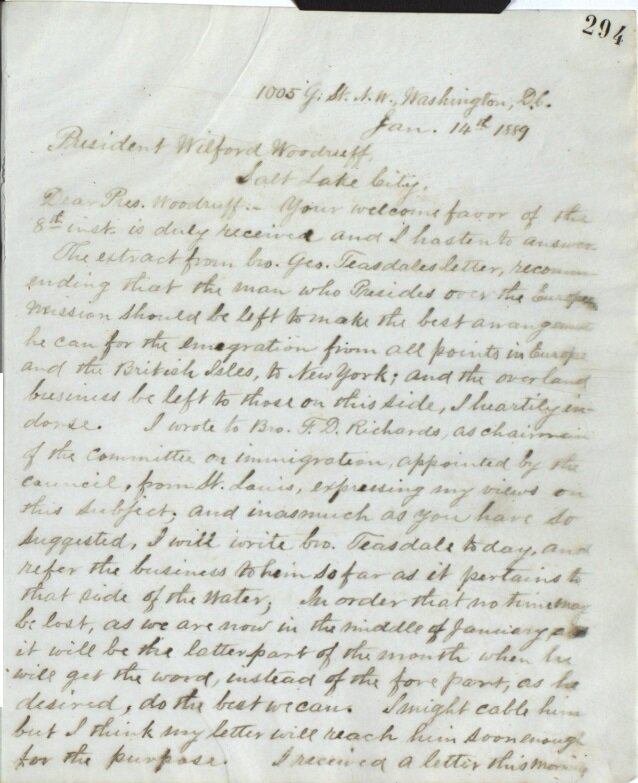 294
1005 G. St. N.W., Washington, D.C.
Jan. 14th 1889
President Wilford Woodruff,
Salt Lake City.
Dear Pres. Woodruff:- Your welcome favor of the
8th inst. is duly received and I hasten to answer
The extract from bro. Geo. Teasdales letter, recomm
ending that the man who Presides over the Europea
mission should be left to make the best arrangement
he can for the emegration from all points in Europe
and the British Isles, to New York; and the overland
business be left to those on this side, I heartily en-
dorse. I wrote to Bro. F. D. Richards, as chairman
of the committee on immigration, appointed by the
council, from St. Louis, expressing my views on
this subject; and inasmuch as you have so
suggested, I will write bro. Teasdale to day, and
refer the business to him so far as it pertains to
that side of the water; In order that no time may
be lost, as we are now in the middle of January
it will be the latter part of the month when he
will get the word, instead of the fore part, as he
desired, do the best we can. I might cable him
but I think my letter will reach him soon enough
for the purpose. I received a letter this morning